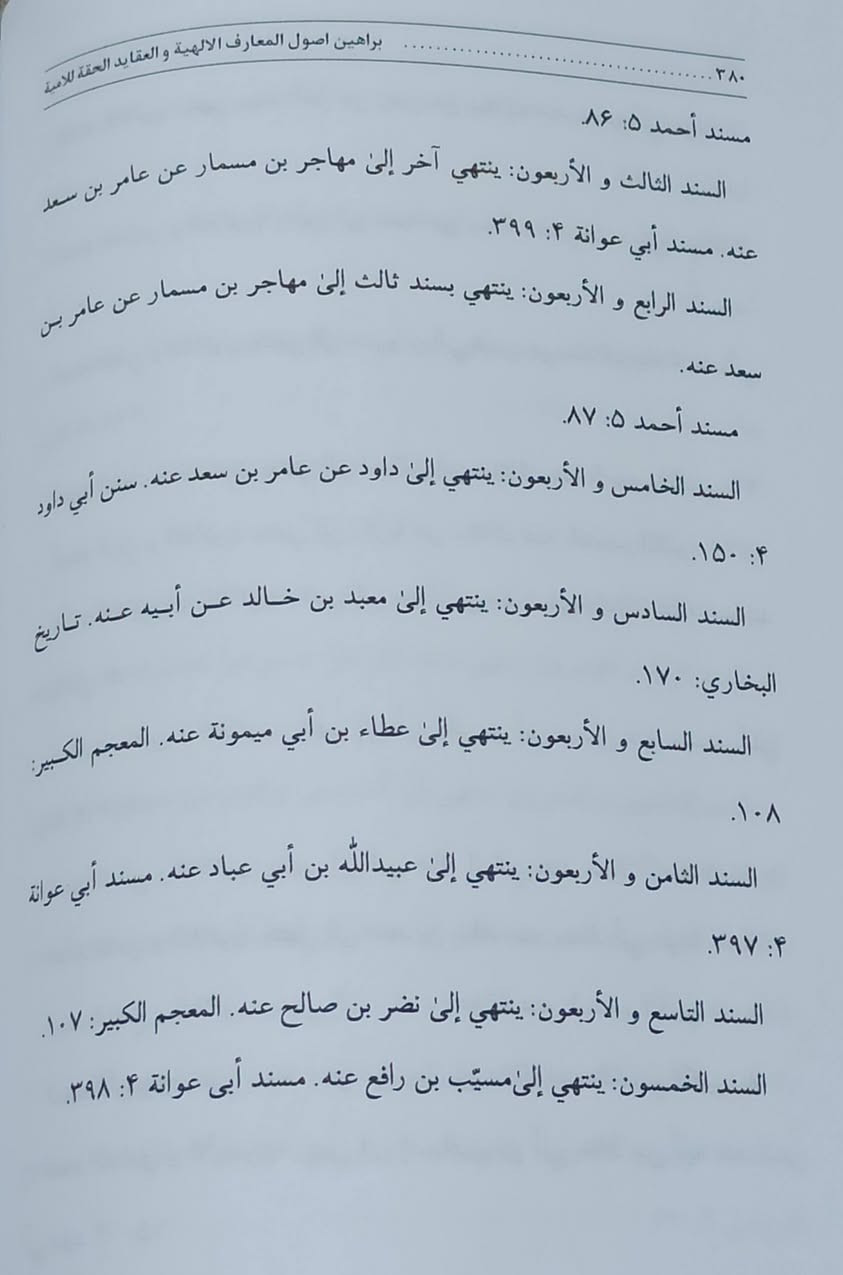 ٣٨٠ ........ براهين اصول المعارف الالهية و العقايد الحقة للامية
مسند أحمد ۵: ۸۶.
السند الثالث و الأربعون: ينتهي آخر إلىٰ مهاجر بن مسمار عن عامر بن سعد
عنه. مسند أبي عوانة ۴: ۳۹۹.
السند الرابع و الأربعون: ينتهي بسند ثالث إلىٰ مهاجر بن مسمار عن عامر بن
سعد عنه.
مسند أحمد ۵: ۸۷.
السند الخامس و الأربعون: ينتهي إلىٰ داود عن عامر بن سعد عنه. سنن أبي داود
۴: ۱۵۰.
السند السادس و الأربعون: ينتهي إلىٰ معبد بن خالد عن أبيه عنه. تاريخ
البخاري: ۱۷۰.
السند السابع و الأربعون: ينتهي إلىٰ عطاء بن أبي ميمونة عنه. المعجم الكبير:
۱۰۸.
السند الثامن و الأربعون: ينتهي إلىٰ عبيدالله بن أبي عباد عنه. مسند أبي عوانة
۴: ۳۹۷.
السند التاسع و الأربعون: ينتهي إلىٰ نضر بن صالح عنه. المعجم الكبير: ۱۰۷.
السند الخمسون: ينتهي إلىٰ مسيّب بن رافع عنه. مسند أبى عوانة ۴: ۳۹۸.